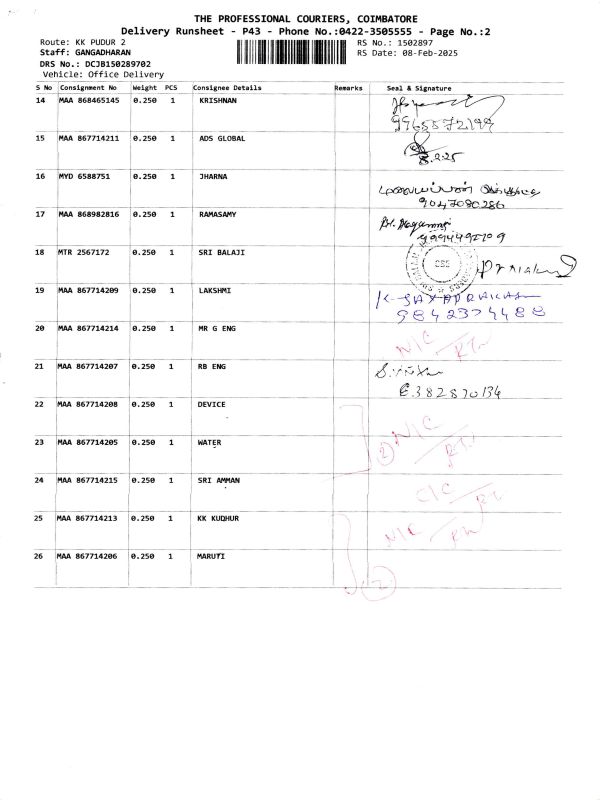 THE PROFESSIONAL COURIERS, COIMBATORE
Delivery Runsheet - P43 - Phone No.:0422-3505555 - Page No.:2
Route: KK PUDUR 2 RS No.: 1502897
Staff: GANGADHARAN RS Date: 08-Feb-2025
DRS No.: DCJB150289702
Vehicle: Office Delivery
S No Consignment No Weight PCS Consignee Details Remarks Seal & Signature
14 MAA 868465145 0.250 1 KRISHNAN
9965572199
15 MAA 867714211 0.250 1 ADS GLOBAL
8.2.25
16 MYD 6588751 0.250 1 JHARNA
9047080286
17 MAA 868982816 0.250 1 RAMASAMY
9994492709
18 MTR 2567172 0.250 1 SRI BALAJI
19 MAA 867714209 0.250 1 LAKSHMI K. JAYAPRAKASH
9842374488
20 MAA 867714214 0.250 1 MR G ENG N/C
RTn
21 MAA 867714207 0.250 1 RB ENG
6382870134
22 MAA 867714208 0.250 1 DEVICE
23 MAA 867714205 0.250 1 WATER 2 N/C
RTn
24 MAA 867714215 0.250 1 SRI AMMAN C/C
RTn
25 MAA 867714213 0.250 1 KK KUDHUR N/C
RTn
26 MAA 867714206 0.250 1 MARUTI
2